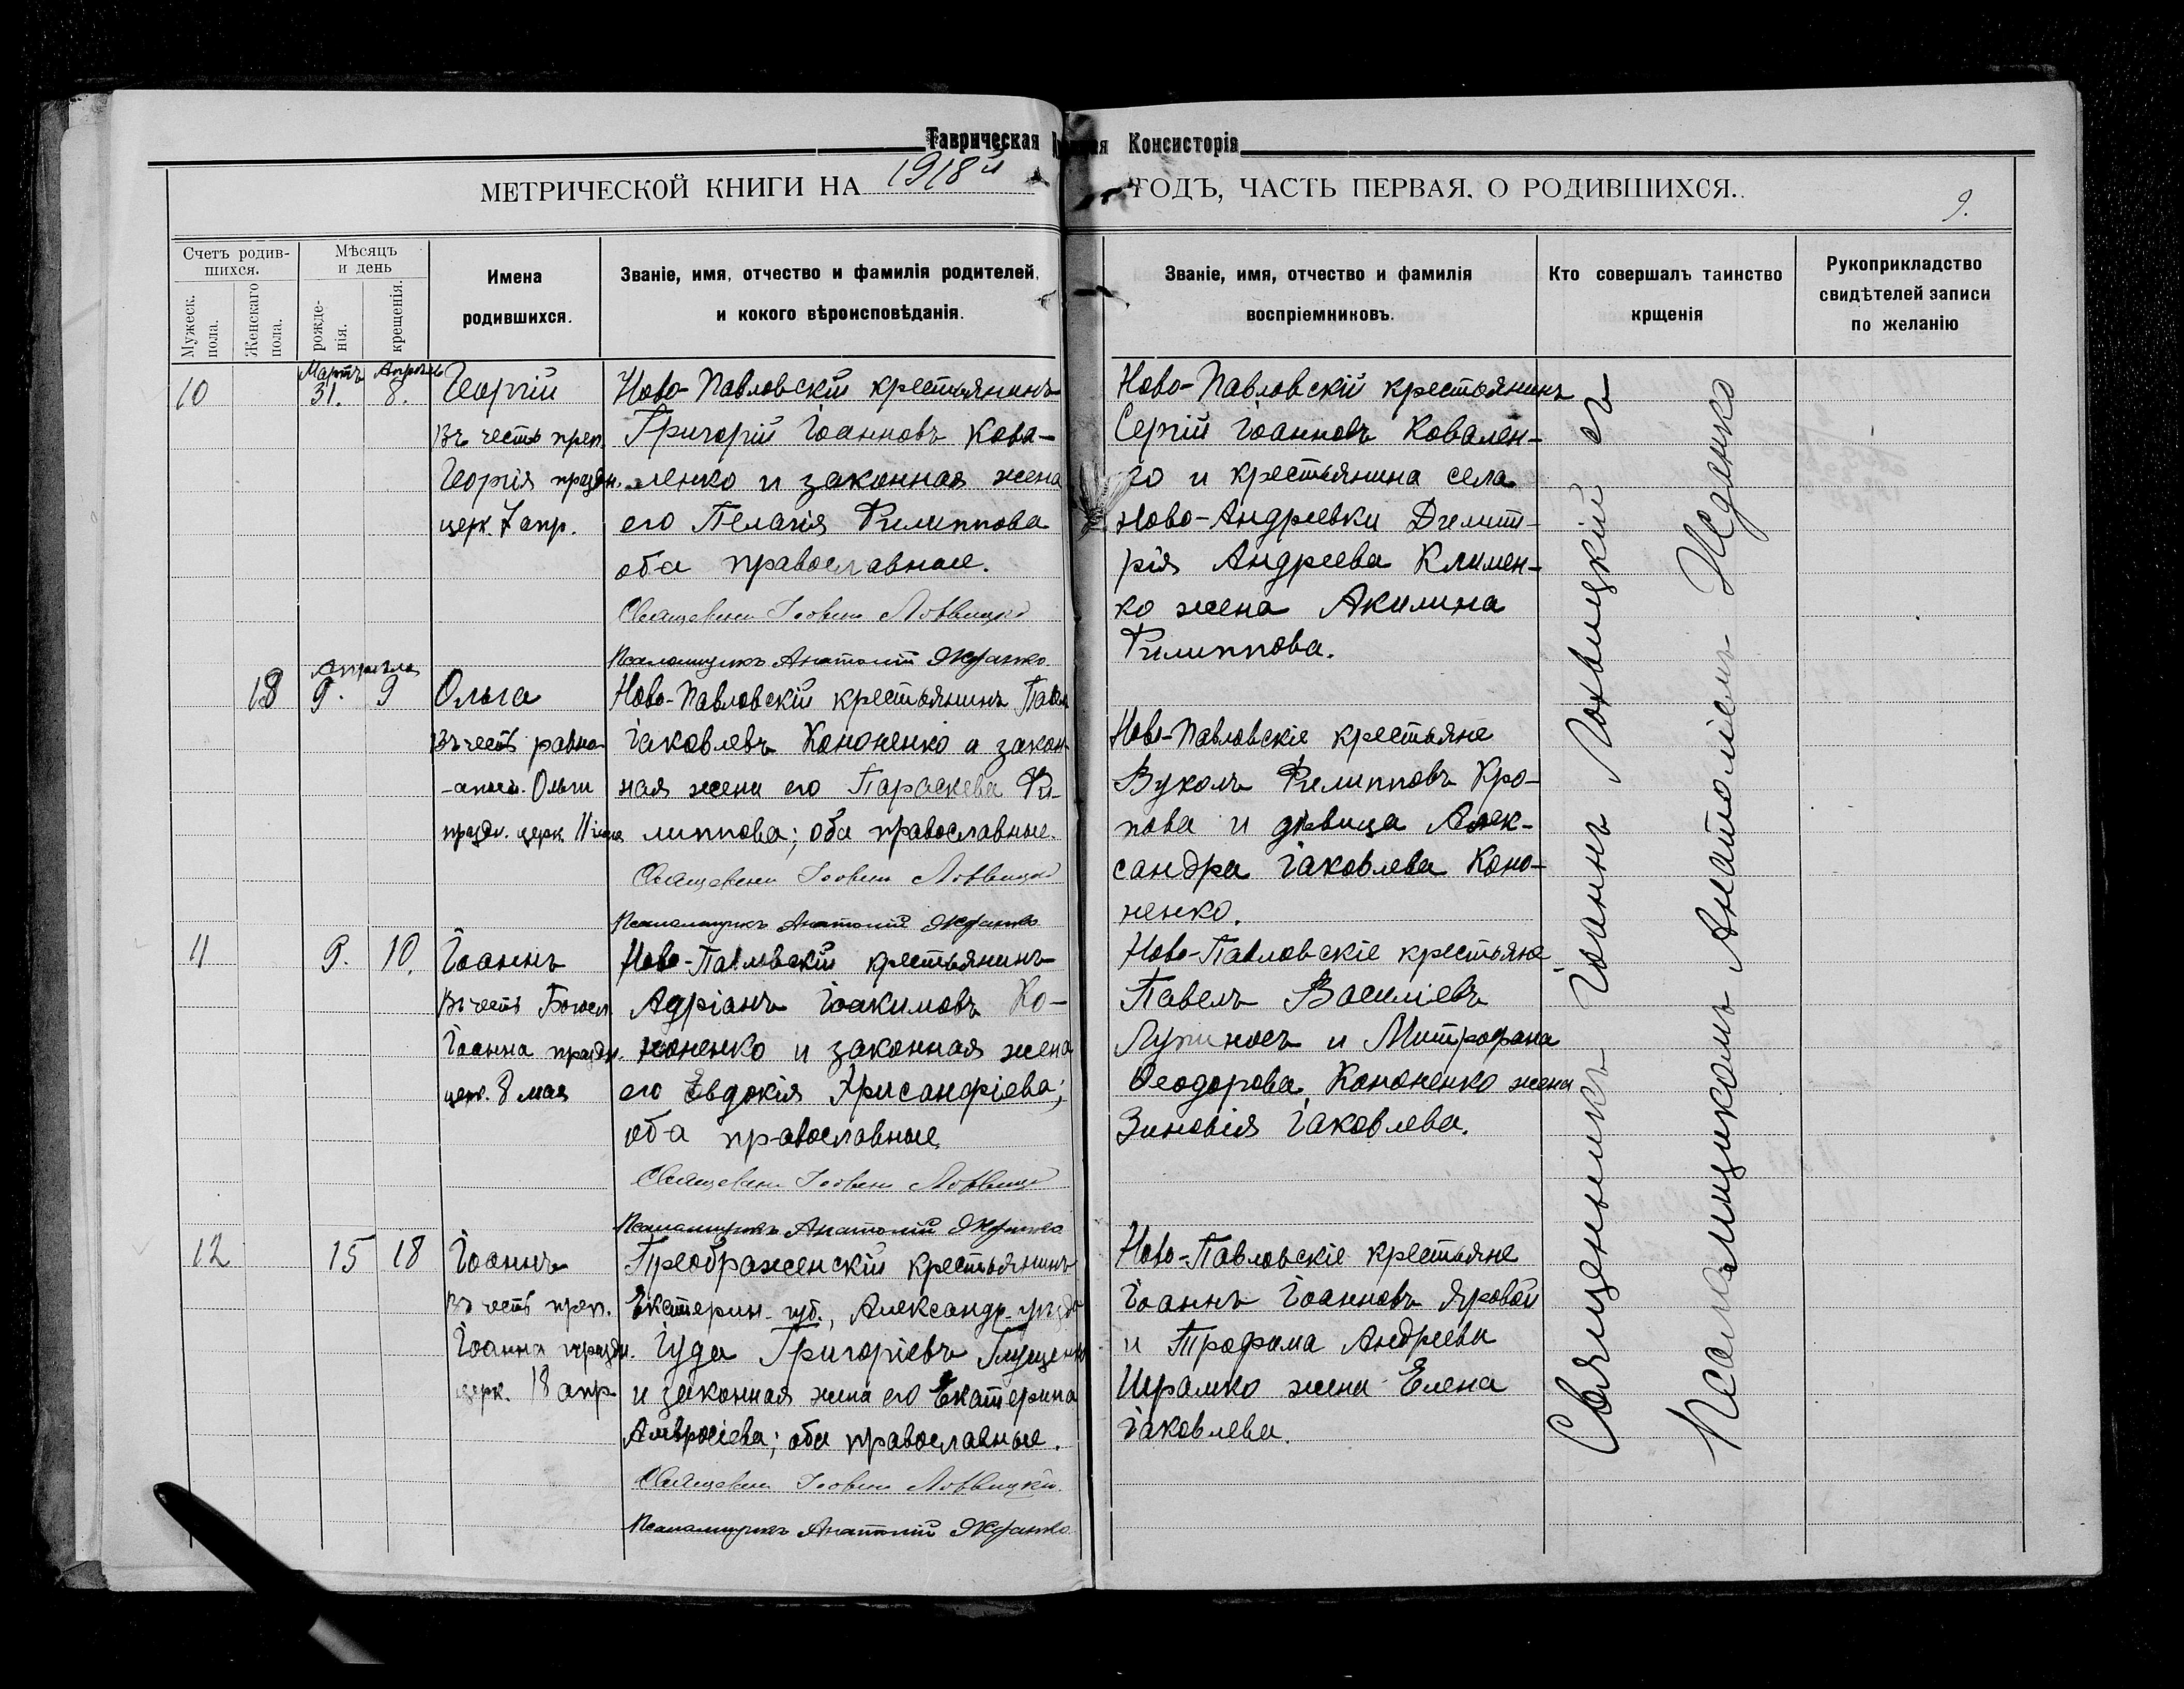 Таврическая
Консисторія
МЕТРИЧЕСКОЙ КНИГИ НА 1918й
ГОДЪ, ЧАСТЬ ПЕРВАЯ, О РОДИВШИХСЯ.
9.
Счетъ родив-
шихся.
Мужеск.
пола.
Женскаго
пола.
Мѣсяцъ
и день
рожде-
нія.
крещенія.
Имена
родившихся.
Званіе, имя, отчество и фамилія родителей,
и кокого вѣроисповѣданія.
Званіе, имя, отчество и фамилія
воспріемниковъ.
Кто совершалъ таинство
крщенія
Рукоприкладство
свидѣтелей записи
по желанію
10
Мартъ
31.
Апрѣль
8.
Георгій
Въ честь преп.
Георгія праздн.
церк. 7 апр.
Ново-Павловскій крестьянинъ
Григорій Іоанновъ Кова-
ленко и законная жена
его Пелагія Филиппова
оба православные.
Священникъ Іоаннъ
Псаломщикъ Анатолій Жданко
Ново-Павловскій крестьянинъ
Сергій Іоанновъ Ковален-
ко и крестьянина села
Ново-Андреевки Димит-
рія Андреева Климен-
ко жена Акилина
Филиппова.
18
Апрѣль
9.
9
Ольга
Въ честь равно-
-апост. Ольги
праздн. церк. 11
Ново-Павловскій крестьянинъ Павелъ
Іаковлевъ Кононенко и закон-
ная жена его Параскева Фи-
липпова; оба православные.
Священникъ Іоаннъ
Псаломщикъ Анатолій Жданко
Ново-Павловскіе крестьяне
Вуколъ Филипповъ Кро-
пова и дѣвица Алек-
сандра Іаковлева Коно-
ненко.
11
9.
10.
Іоаннъ
Въ честь Богосл.
Іоанна праздн.
церк. 8 мая
Ново-Павловскій крестьянинъ
Адріанъ Іоакимовъ Ко-
ноненко и законная жена
его Евдокія Хрисанфіева;
оба православные.
Священникъ Іоаннъ
Псаломщикъ Анатолій Жданко
Ново-Павловскіе крестьяне
Павелъ Василіевъ
и Митрофана
Ѳеодорова Кононенко жена
Зиновія Іаковлева.
12
15
18
Іоаннъ
Въ честь преп.
Іоанна праздн.
церк. 18 апр.
Преображенскій крестьянинъ
Екатерин. губ., Александр. уѣзда
Іуда Григоріевъ Глущенко
и законная жена его Екатерина
Амвросіева; оба православные.
Священникъ Іоаннъ
Псаломщикъ Анатолій Жданко
Ново-Павловскіе крестьяне
Іоаннъ Іоанновъ Яровой
и Трофима Андреева
Шрамко жена Елена
Іаковлева.
Священникъ Іоаннъ Лотвицкій съ
Псаломщикомъ Анатоліемъ Жданко